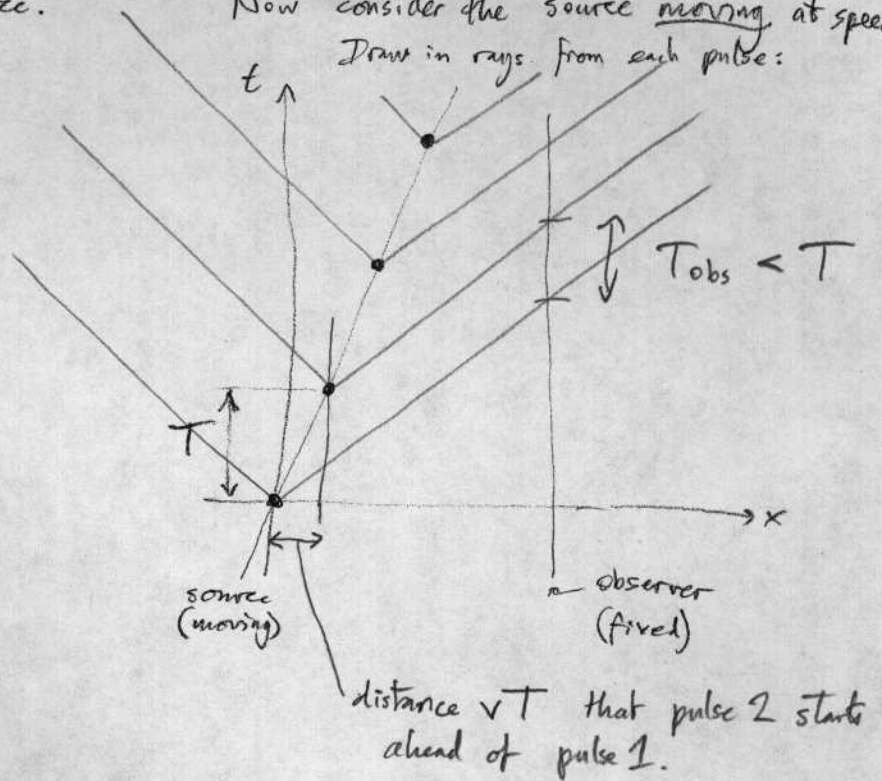 Now consider the source moving at speed
Draw in rays from each pulse:
t
Tobs < T
T
x
source
(moving)
observer
(fixed)
distance vT that pulse 2 starts
ahead of pulse 1.